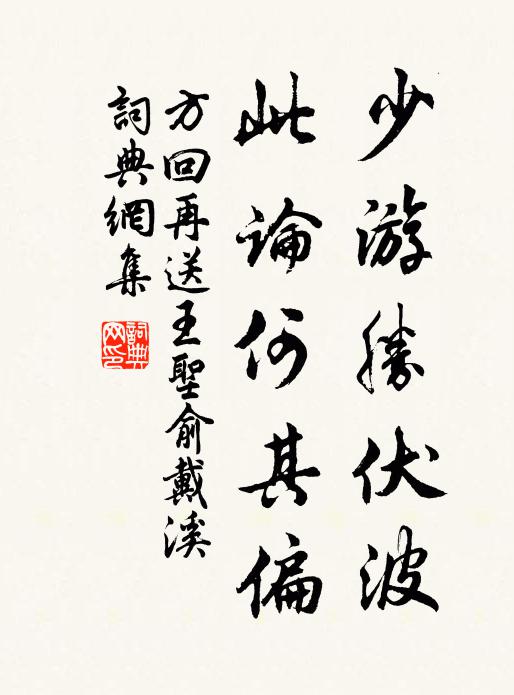 少游勝伏波
此論何其偏
方回再送王聖俞戴溪
詞典網集
詞典網印